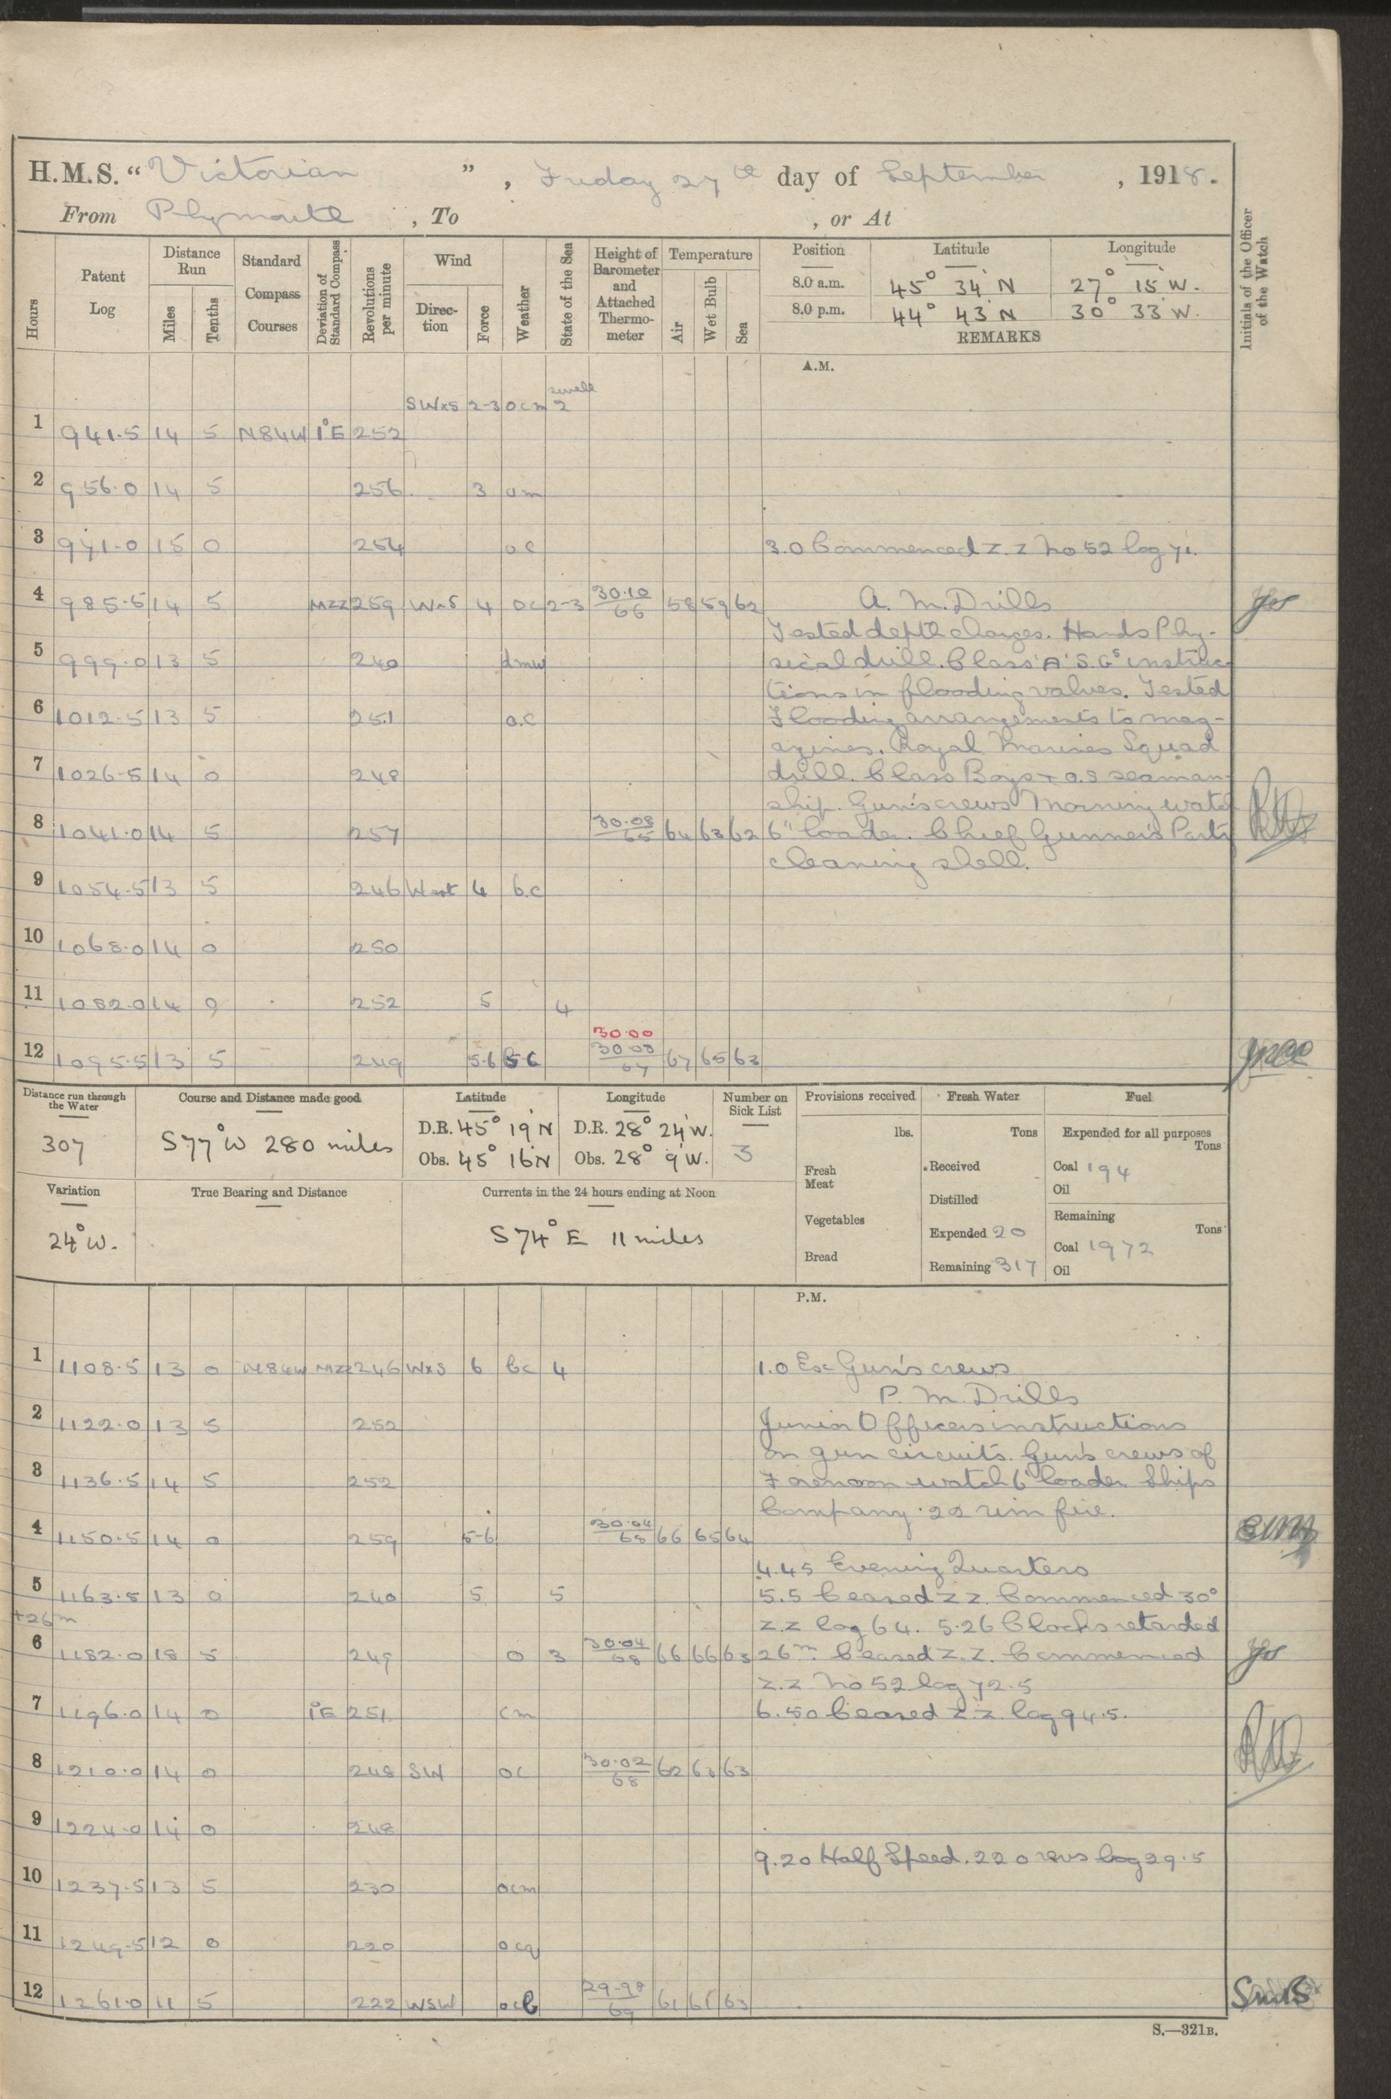 H.M.S. “ Victorian ” , Friday 27th day of September , 1918.
From Plymouth , To , or At
Hours
Patent Log
Distance Run
Miles
Tenths
Standard Compass Courses
Deviation of Standard Compass
Revolutions per minute
Wind
Direction
Force
Weather
State of the Sea
Height of Barometer and Attached Thermometer
Temperature
Air
Wet Bulb
Sea
Position Latitude Longitude
8.0 a.m. 45° 34' N 27° 15' W.
8.0 p.m. 44° 43' N 30° 33' W.
REMARKS
Initials of the Officer of the Watch
A.M.
swell
SWxS 2-3 ocm 2
1 941.5 14 5 N84W 1°E 252
2 956.0 14 5 256 3 om
3 971.0 15 0 254 oc 3.0 Commenced Z.Z No 52 log 71.
4 985.5 14 5 MZZ 259 WxS 4 oc 2-3 30.10/66 58 59 62 A. M. Drills
Tested depth charges. Hands Phy-
5 999.0 13 5 240 dmw sical drill. Class 'A' S.Gs instruc-
tions in flooding valves. Tested
6 1012.5 13 5 251 o.c Flooding arrangements to mag-
azines. Royal Marines Squad
7 1026.5 14 0 248 drill. Class Boys & O.S seaman-
ship. Gun's crews Morning watch
8 1041.0 14 5 257 30.08/65 64 63 62 6" loader. Chief Gunner's Party
cleaning shell.
9 1054.5 13 5 246 West 4 b.c
10 1068.0 14 0 250
11 1082.0 14 0 252 5 4
30.00
12 1095.5 13 5 249 5-6 bc 30.08/67 67 65 63
Distance run through the Water
307
Course and Distance made good
S77°W 280 miles
Latitude
D.R. 45° 19' N
Obs. 45° 16' N
Longitude
D.R. 28° 24' W.
Obs. 28° 9' W.
Number on Sick List
3
Provisions received
lbs.
Fresh Meat
Vegetables
Bread
Fresh Water
Tons
Received
Distilled
Expended 20
Remaining 317
Fuel
Expended for all purposes
Tons
Coal 194
Oil
Remaining
Tons
Coal 1972
Oil
Variation
24°W.
True Bearing and Distance
Currents in the 24 hours ending at Noon
S74° E 11 miles
P.M.
1 1108.5 13 0 N84W MZZ 246 WxS 6 bc 4 1.0 Ex Gun's crews
P. M. Drills
2 1122.0 13 5 252 Junior Officers instructions
on gun circuits. Gun's crews of
3 1136.5 14 5 252 Forenoon watch 6" loader. Ships
Company .22 rim fire.
4 1150.5 14 0 259 5-6 30.04/68 66 65 64
4.45 Evening Quarters
5 1163.5 13 0 240 5 5 5.5 Ceased Z Z. Commenced 30°
+26m Z.Z log 64. 5.26 Clocks retarded
6 1182.0 18 5 249 o 3 30.04/68 66 66 63 26m. Ceased Z.Z. Commenced
Z.Z No 52 log 72.5
7 1196.0 14 0 1°E 251 cm 6.50 Ceased Z.Z. log 94.5.
8 1210.0 14 0 248 SW oc 30.02/68 62 63 63
9 1224.0 14 0 248
9.20 Half Speed. 220 revs log 29.5
10 1237.5 13 5 230 ocm
11 1249.5 12 0 220 ocq
12 1261.0 11 5 222 WSW ocb 29.98 61 61 63
S.—321B.